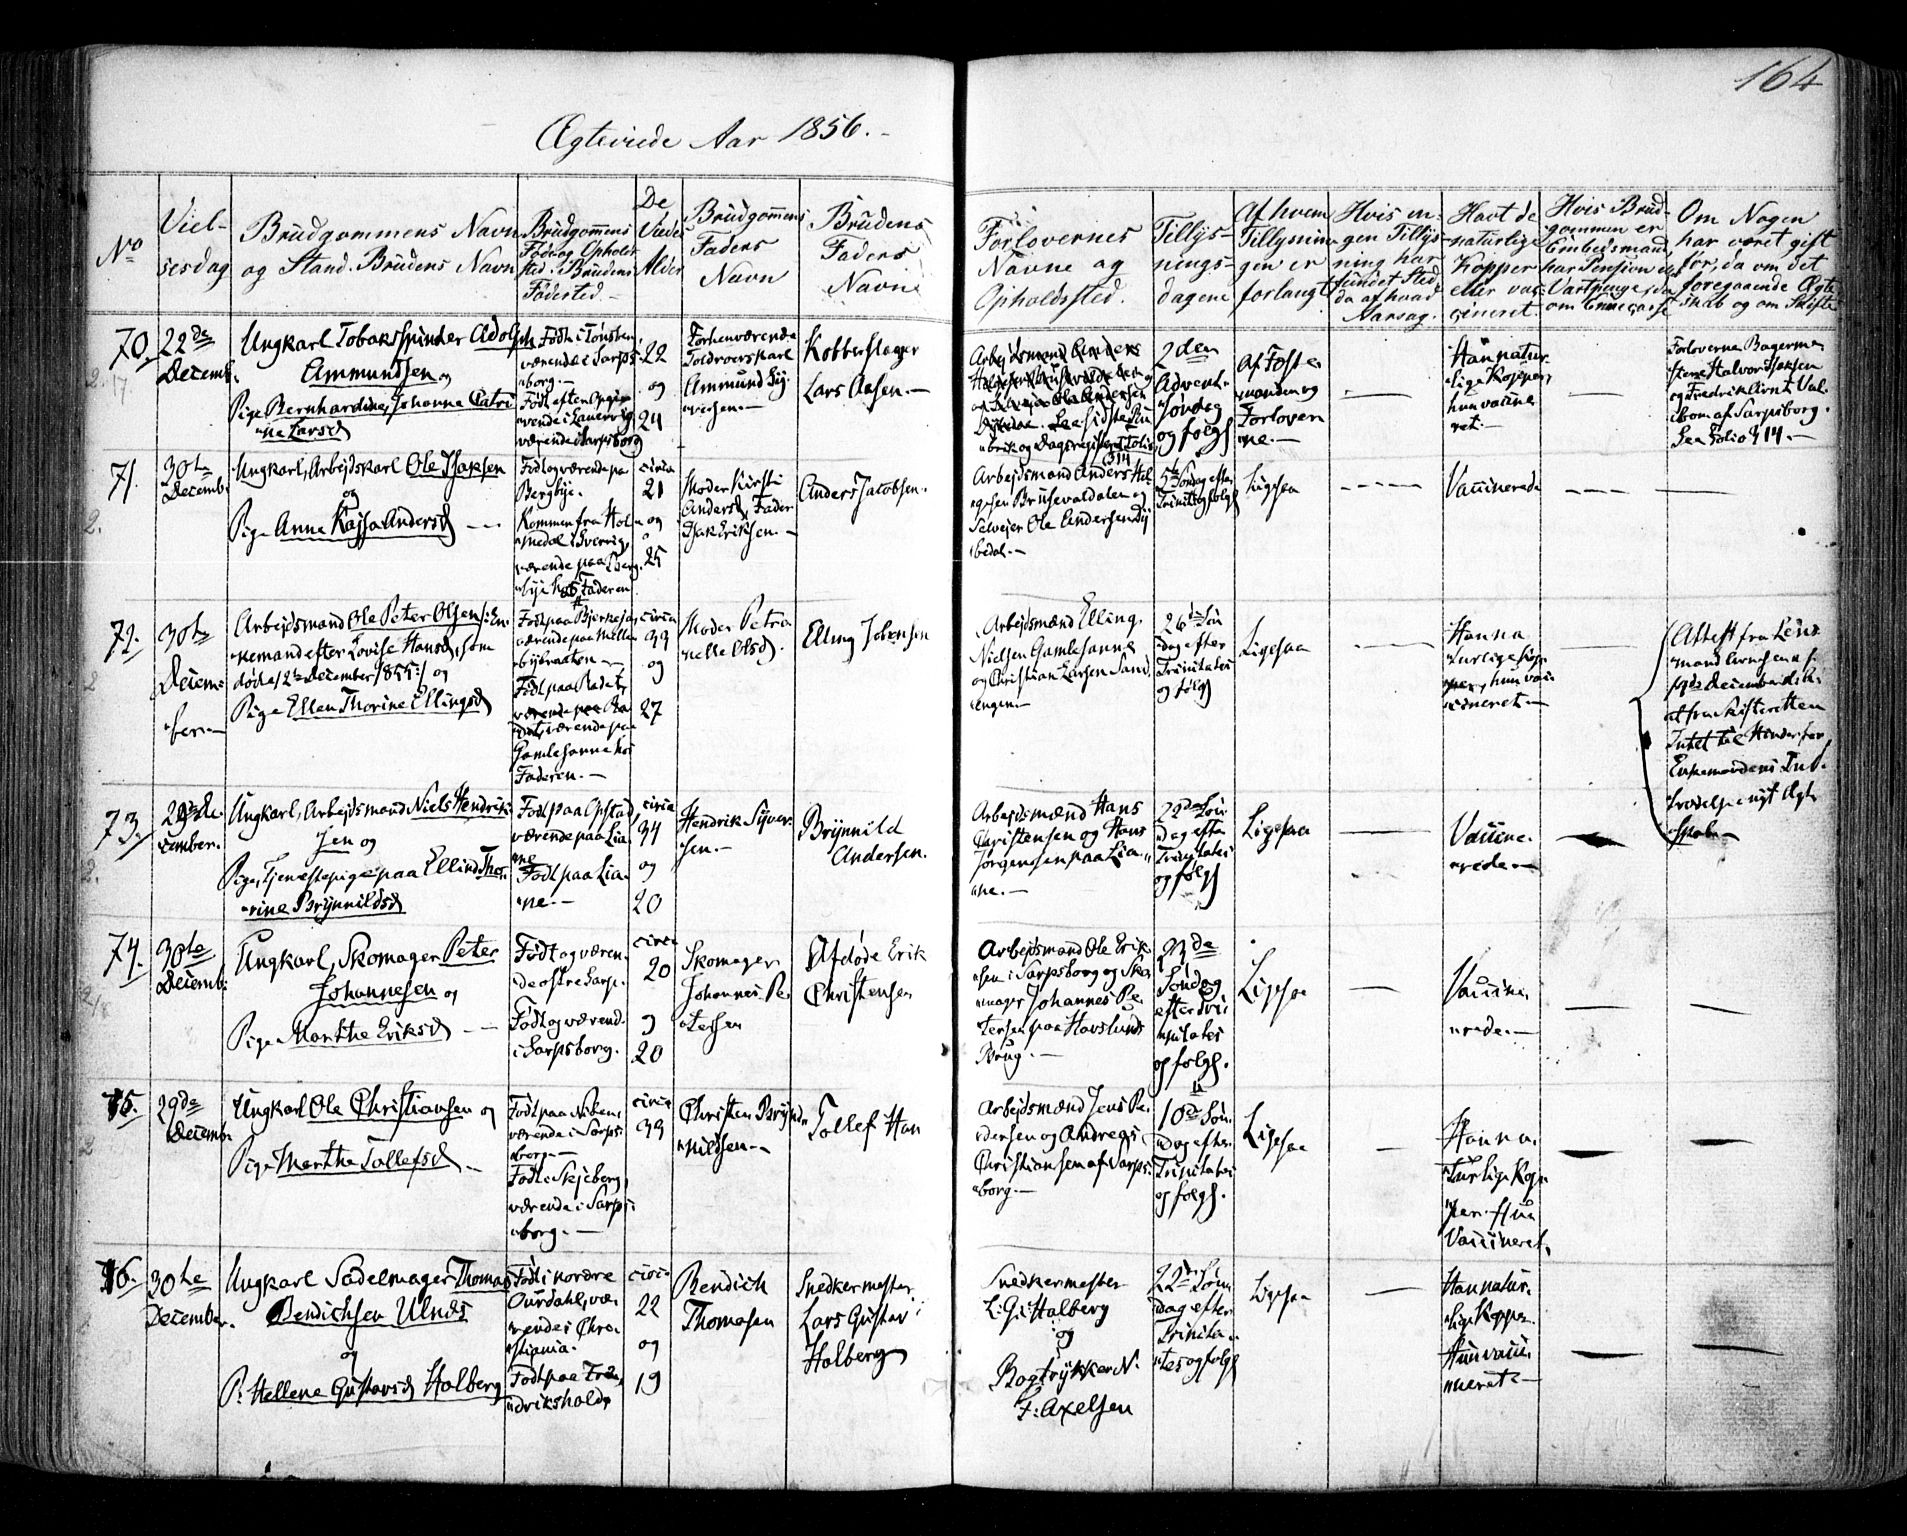 164
Ægteviede Aar 1856.-
No
Viel-
sesdag
Brudgommens Navn
og Stand. Brudens Navn
Brudgommens
Føde og Opholds
sted. Brudens
Fødested.-
De
Viedes
Alder
Brudgommens
Faders
Navn
Brudens
Faders
Navn
Forlovernes
Navne og
Opholdssted.
Tillys-
nings-
dagene
Af hvem
Tillysnin-
gen er
forlangt
Hvis in-
gen Tillys-
ning har
fundet Sted,
da af hvad
Aarsag.
Havt de
naturlige
Kopper
eller vac-
cineret.
Hvis Brud-
gommen er
Embedsmand,
har Pension eller
Vartpenge, da
om Enkecasse
Om Nogen
har været gift
før, da om det
foregaaende Ægte
skab og om Skifte
70.
22de
Decemb.
Ungkarl Tobaksspinder Adolph
Ammundsen og
Pige Bernhardine Johanne Catri
"ne Larsd
Født i Tønsberg,
værende i Sarps-
"borg.-
værende i Sarpsborg
22
og
24
Forhenværende
Toldroerskarl
Ammund Sy-
"versen.-
Kobberslager
Lars Aasen.-
Arbejdsmand Anders
2den
Advent-
"Søndag
og følg
Af Forlo
manden og
Forlover
"ne.-
Han natur
"lige Kopper,
hun vacine
ret.-
Forloverne Bagerme
stere Halvor Isaksen
og Fredrik Arnt Val-
"bom af Sarpsborg.
See Folio 314.-
71.
30te
Decemb.
Ungkarl, Arbejdskarl Ole Isaksen
og
Pige Anne Kajsa Andersd
Født og værende paa
Bergbye.
Kommen fra Hol-
"medal i Sverrig,
værende paa Berg-
"bye hos Faderen
circa
21
og
25
Moder Kirsti
Andersd, Fader
Isak Eriksen.-
Anders Jacobsen.
Arbejdsmand Anders Hel
"gesen Brusevaldalen og
Selvejer Ole Andersen Dy
"bedal.-
5te Søndag efter
Trinit og følg
Ligesaa
Vaccinerede
72.
30te
Decem-
"ber.-
Arbejdsmand Ole Peter Olsen /: En-
"kemand efter Lovise Hansd, som
døde 12te December 1855:/ og
Pige Ellen Thorine Ellingsd
Født paa Bjerkesøe,
værende paa Mellem
Født paa Radet,
værende paa Ra
det, værende paa
Gamlesanne hos
Faderen.-
circa
39
og
27
Moder Petro
"nelle Olsd.
Elling Johnsen
Arbejdsmænd Elling
Nielsen Gamlesanne
og Christian Larsen Sand
"engen.-
26de Søn
"dag efter
Trinitatis
og følg
Ligesaa
Han na
"turlige Kop
per, hun vac
"cineret.-
Attest fra Lens
mand Arnesen af
at fra Skifteretten
Intet til Hinder for
Enkemandens Ind-
trædelse i nyt Ægte
"skab.-
73.
29de De
"cember.
Ungkarl, Arbejdsmand Niels Hendrik-
sen og
Pige, Tjenestepige paa Ellind Tho-
"rine Brynnildsd
Født paa Opstad,
værende paa Lia-
"ne
Født paa Lia-
"ne.-
circa
34
og
20
Hendrik Syver-
sen.-
Brynnild
Andersen.
Arbejdsmænd Hans
Christensen og Hans
Jørgensen paa Lia-
"ne.-
22de Søn
"dag efter
Trinitatis
og følg
Ligesaa
Vaccine-
"rede.-
74.
30te
Decemb.
Ungkarl, Skomager Peter
Johannesen og
Pige Marthe Eriksd
Født og væren-
"de østre Sarp.
Født og værend.
i Sarpsborg.
circa
20
og
20
Skomager
Johannes Pe-
"tersen
Afdøde Erik
Christensen
Arbejdsmand Ole Erik-
"sen i Sarpsborg og Sko-
"mager Johannes Pe-
tersen paa Hafslunds
Brug.-
23de
Søndag
efter Tri-
"nitatis
og følg.
Ligesaa
Vaccine-
"rede.-
75.
29de
Decemb.
Ungkarl Ole Christiansen og
Pige Marthe Tollefsd
værende i Sarps-
"borg.-
Født i Skjeberg,
værende i Sarps-
"borg.-
circa
39
Christen Brynd-
"nildsen.-
Tollef Han
Arbejdsmænd Jens Pe-
"dersen og Andreas
Christiansen af Sarps-
"borg.-
10de Søn-
"dag efter
Trinitatis
og følg.
Ligesaa
Han na-
"turlige Kop-
"per. Hun
Vaccineret.
76.
30te
December.
Ungkarl Sadelmager Thomas
Bendichsen Ulnæs
og
P: Hellene Gustavsd Holberg
Født i nordre
Ourdahl, væ-
"rendes Chri-
"stiania.
Født paa Fre-
"driksholds
circa
22
og
19
Bendich
Thomesen
Snedkermester
Lars Gustav
Holberg
Snedkermester
L: G: Holberg
og
Bogtrykker N.
F: Axelsen
22de Søn
"dag efter
Trinita-
"tes og følg
Ligesaa
Han natur-
"lige Kopper.
Hun vacci-
"neret.-